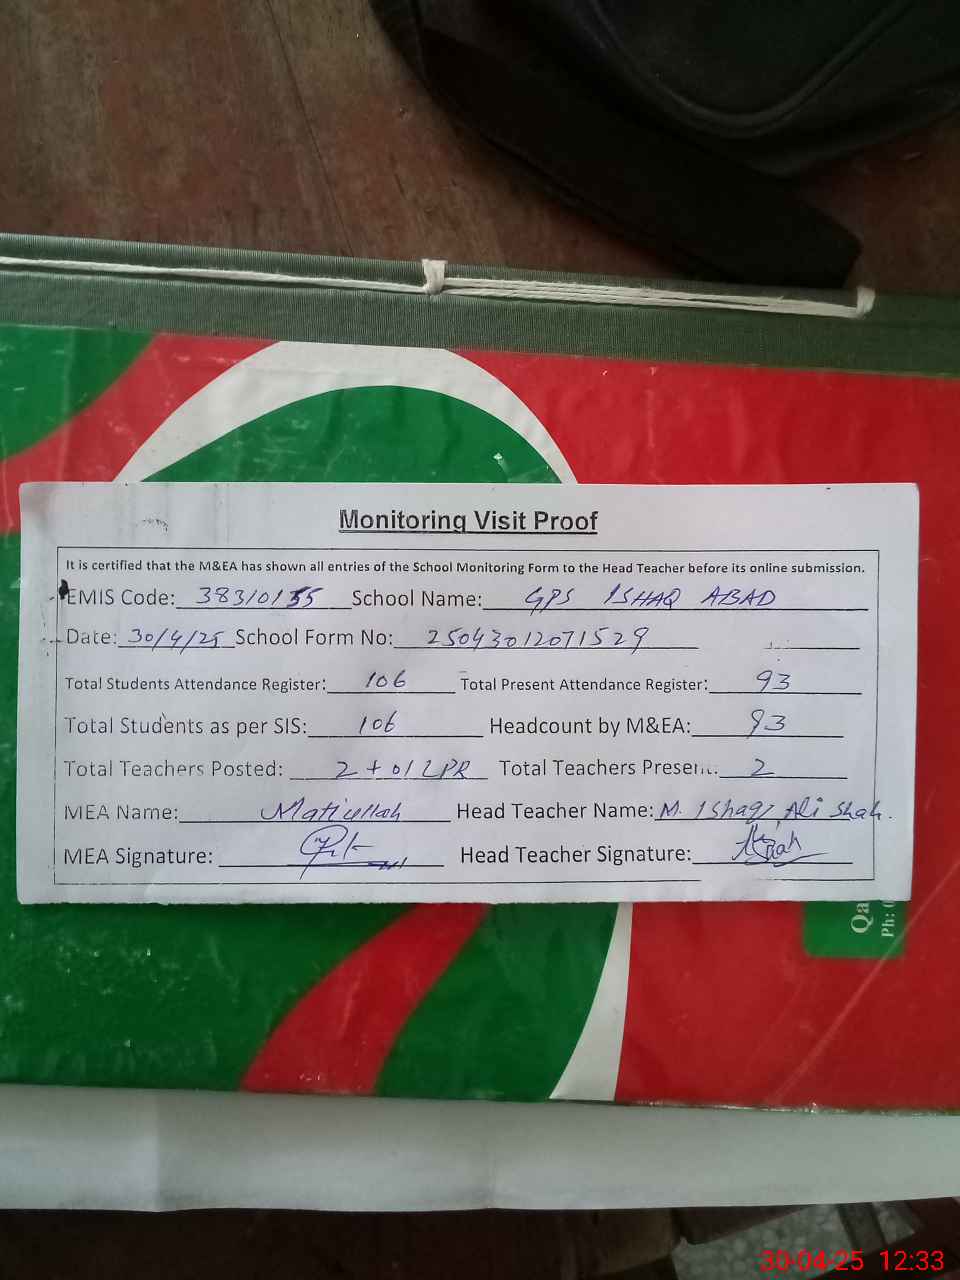 Monitoring Visit Proof
It is certified that the M&EA has shown all entries of the School Monitoring Form to the Head Teacher before its online submission.
EMIS Code: 38310155 School Name: GPS ISHAQ ABAD
Date: 30/4/25 School Form No: 25043012071529
Total Students Attendance Register: 106 Total Present Attendance Register: 93
Total Students as per SIS: 106 Headcount by M&EA: 93
Total Teachers Posted: 2 + 01 LPR Total Teachers Present: 2
MEA Name: Matiullah Head Teacher Name: M. Ishaq Ali Shah.
MEA Signature: Head Teacher Signature:
Qa
Ph: 0
30-04-25 12:33